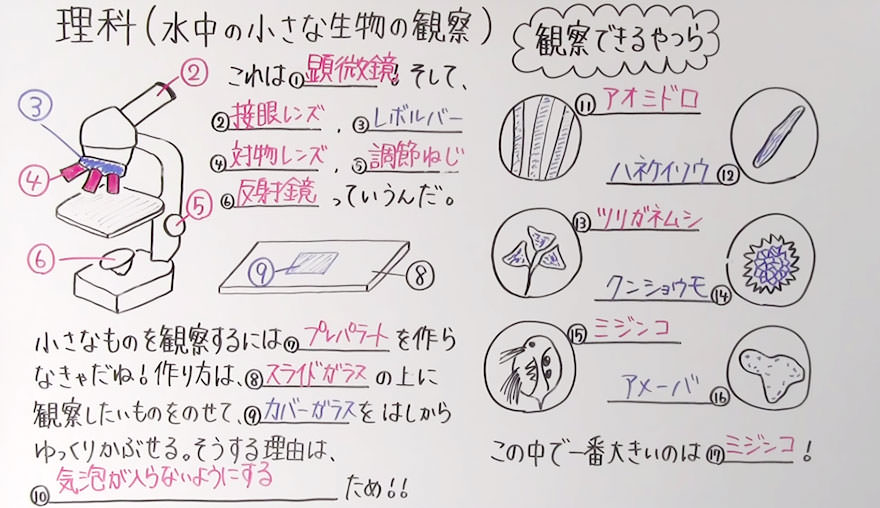 理科(水中の小さな生物の観察)
観察できるやつら
②
③
④
⑤
⑥
これは①顕微鏡!そして、
②接眼レンズ、③レボルバー
④対物レンズ、⑤調節ねじ
⑥反射鏡っていうんだ。
⑨
⑧
小さなものを観察するには⑦プレパラートを作ら
なきゃだね!作り方は、⑧スライドガラスの上に
観察したいものをのせて、⑨カバーガラスをはしから
ゆっくりかぶせる。そうする理由は、
⑩気泡が入らないようにするため!!
⑪アオミドロ
ハネケイソウ⑫
⑬ツリガネムシ
クンショウモ⑭
⑮ミジンコ
アメーバ⑯
この中で一番大きいのは⑰ミジンコ!